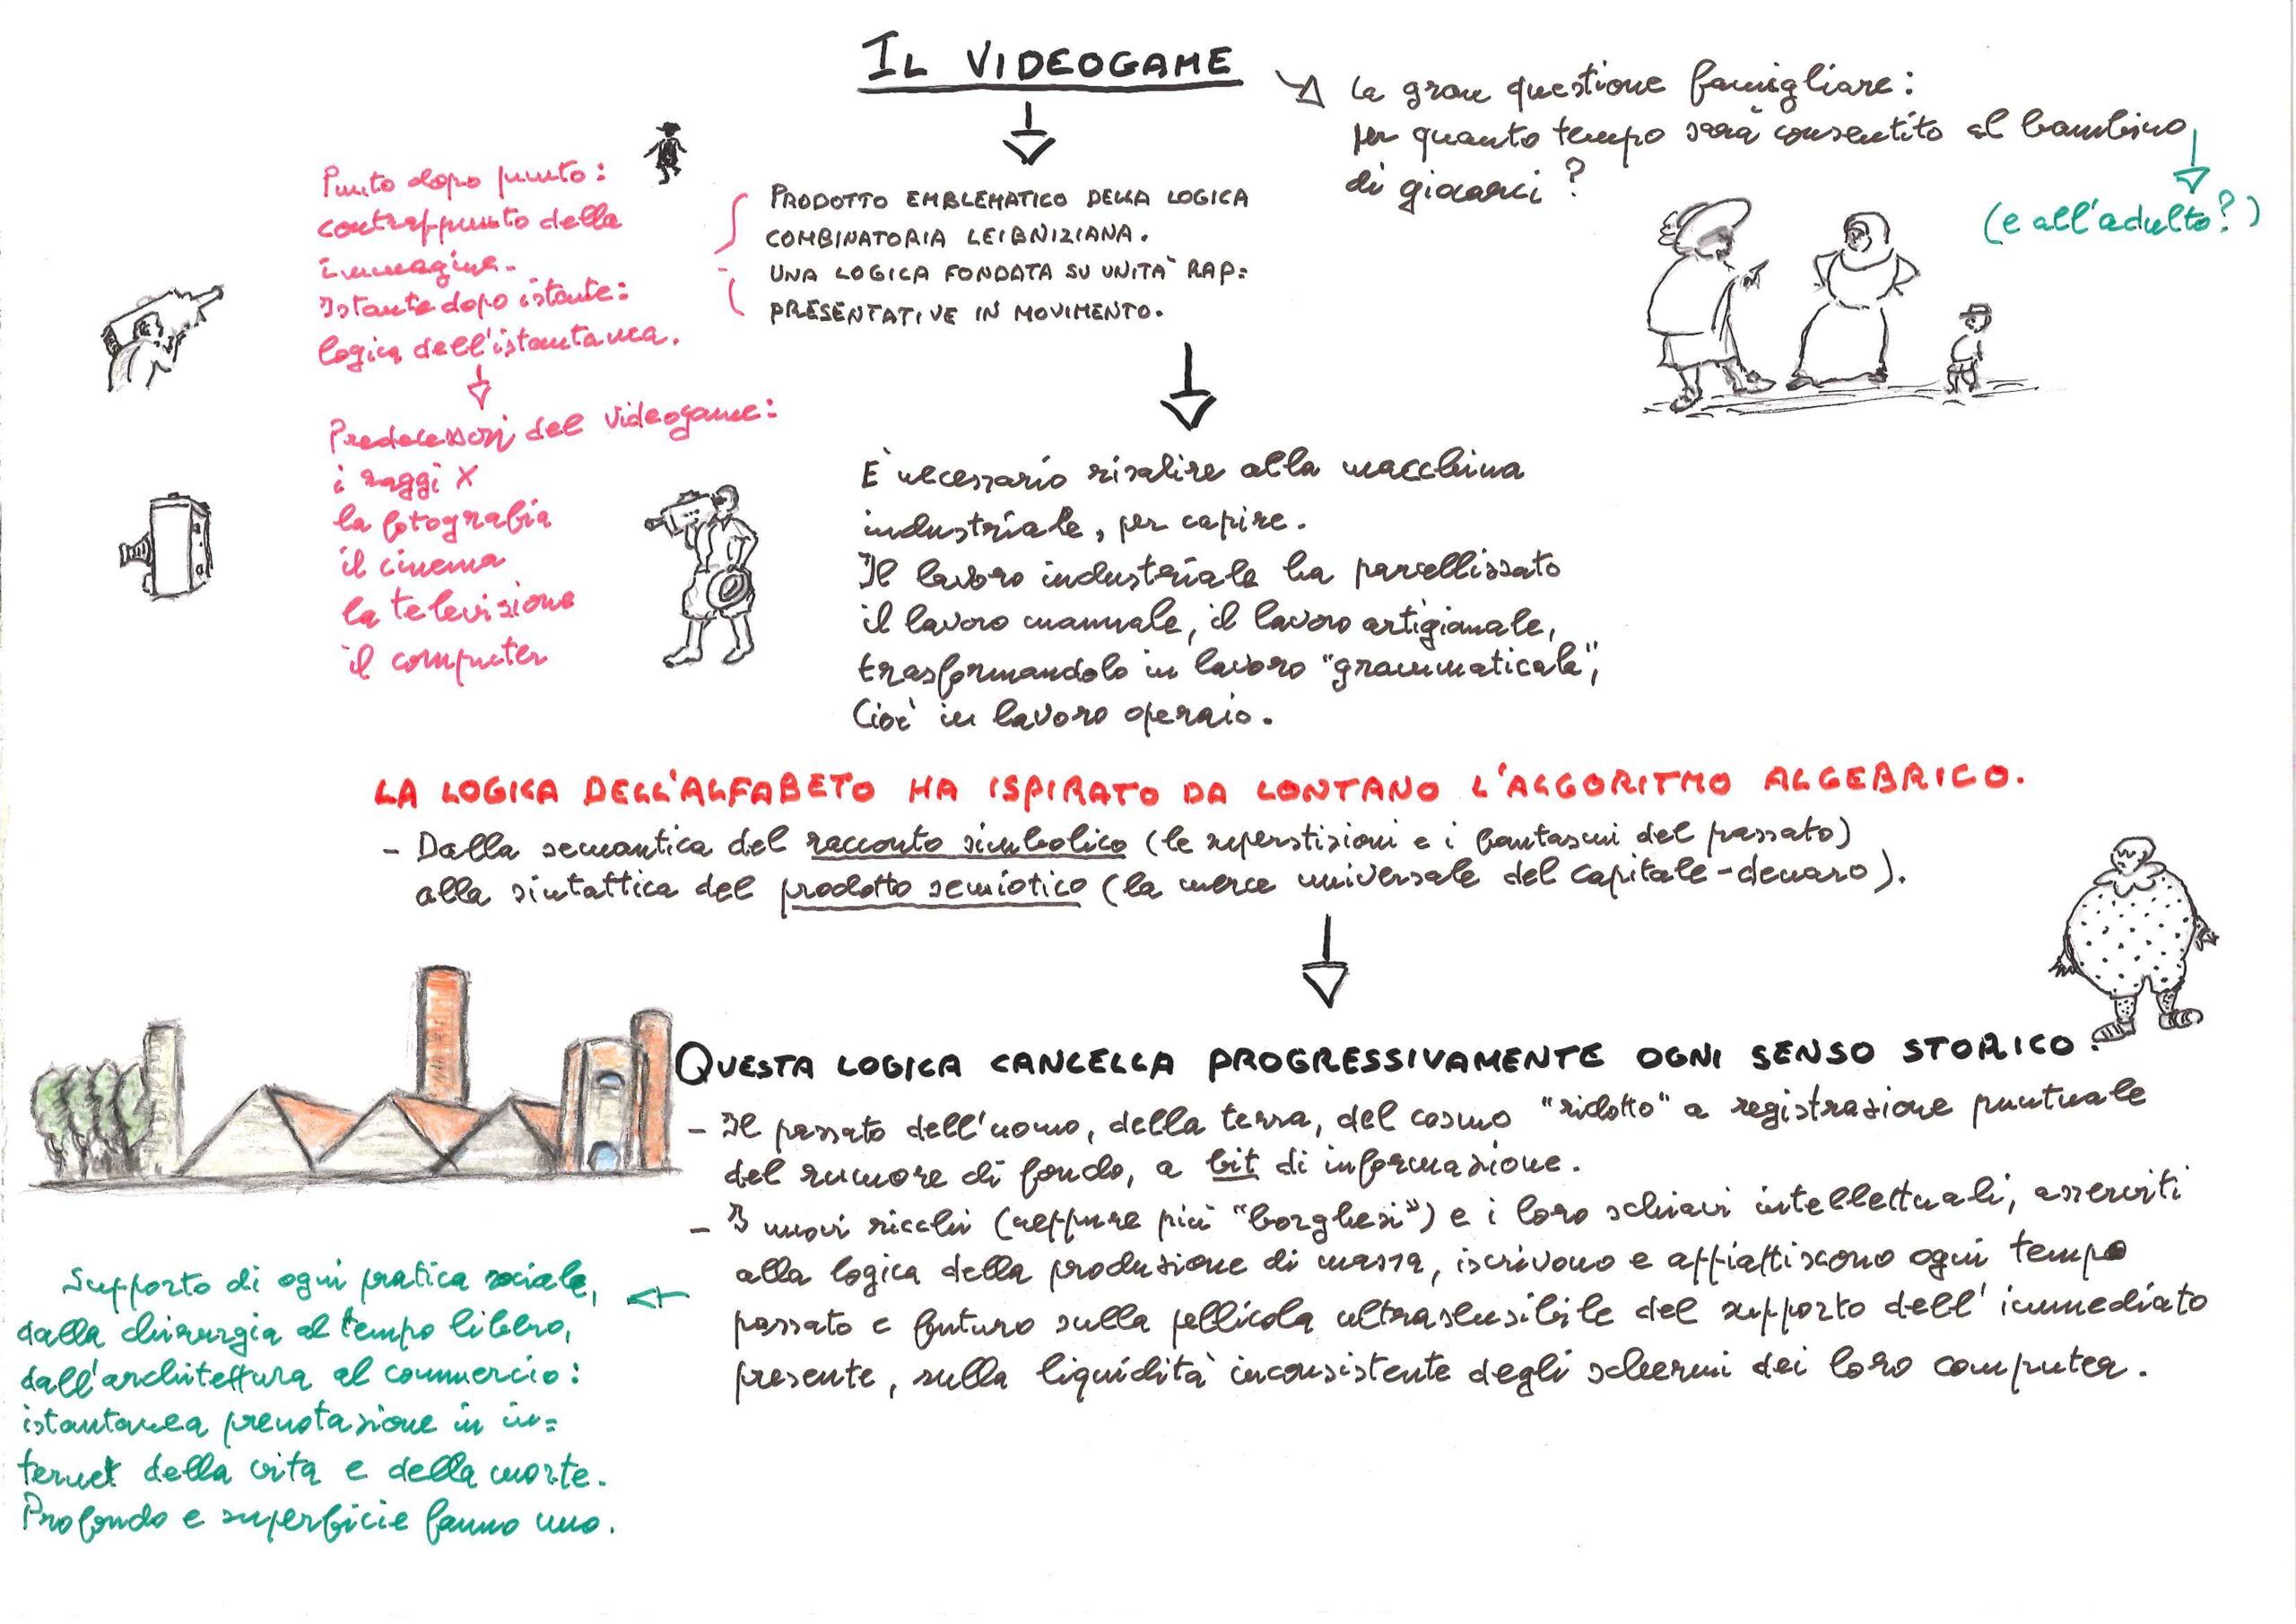 IL VIDEOGAME
La gran questione famigliare:
per quanto tempo sarà consentito al bambino
di giocarci?
(e all'adulto?)
Punto dopo punto:
contrappunto della
immagine.
Istante dopo istante:
logica dell'istantanea.
Predecessori del videogame:
i raggi X
la fotografia
il cinema
la televisione
il computer
PRODOTTO EMBLEMATICO DELLA LOGICA
COMBINATORIA LEIBNIZIANA.
UNA LOGICA FONDATA SU UNITÀ RAP=
PRESENTATIVE IN MOVIMENTO.
È necessario risalire alla macchina
industriale, per capire.
Il lavoro industriale ha parcellizzato
il lavoro manuale, il lavoro artigianale,
trasformandolo in lavoro "grammaticale",
Cioè in lavoro operaio.
LA LOGICA DELL'ALFABETO HA ISPIRATO DA LONTANO L'ALGORITMO ALGEBRICO.
- Dalla semantica del racconto simbolico (le superstizioni e i fantasmi del passato)
alla sintattica del prodotto semiotico (la merce universale del capitale-denaro).
QUESTA LOGICA CANCELLA PROGRESSIVAMENTE OGNI SENSO STORICO.
- Il passato dell'uomo, della terra, del cosmo "ridotto" a registrazione puntuale
del rumore di fondo, a bit di informazione.
- I nuovi ricchi (neppure più "borghesi") e i loro schiavi intellettuali, asserviti
alla logica della produzione di massa, iscrivono e appiattiscono ogni tempo
passato e futuro sulla pellicola ultrasensibile del supporto dell'immediato
presente, sulla liquidità inconsistente degli schermi dei loro computer.
Supporto di ogni pratica sociale,
dalla chirurgia al tempo libero,
dall'architettura al commercio:
istantanea prenotazione in in=
ternet della vita e della morte.
Profondo e superficie fanno uno.